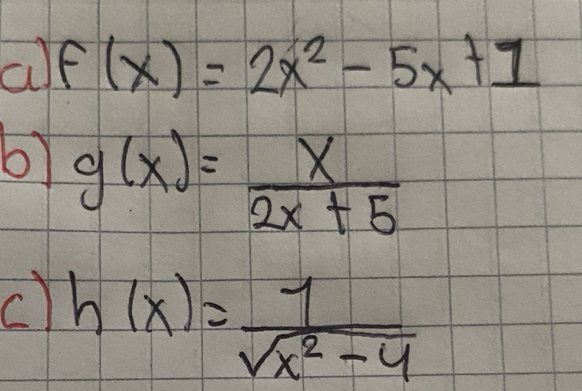 a) f(x) = 2x² - 5x + 1
b) g(x) = x / (2x + 5)
c) h(x) = 1 / √(x² - 4)